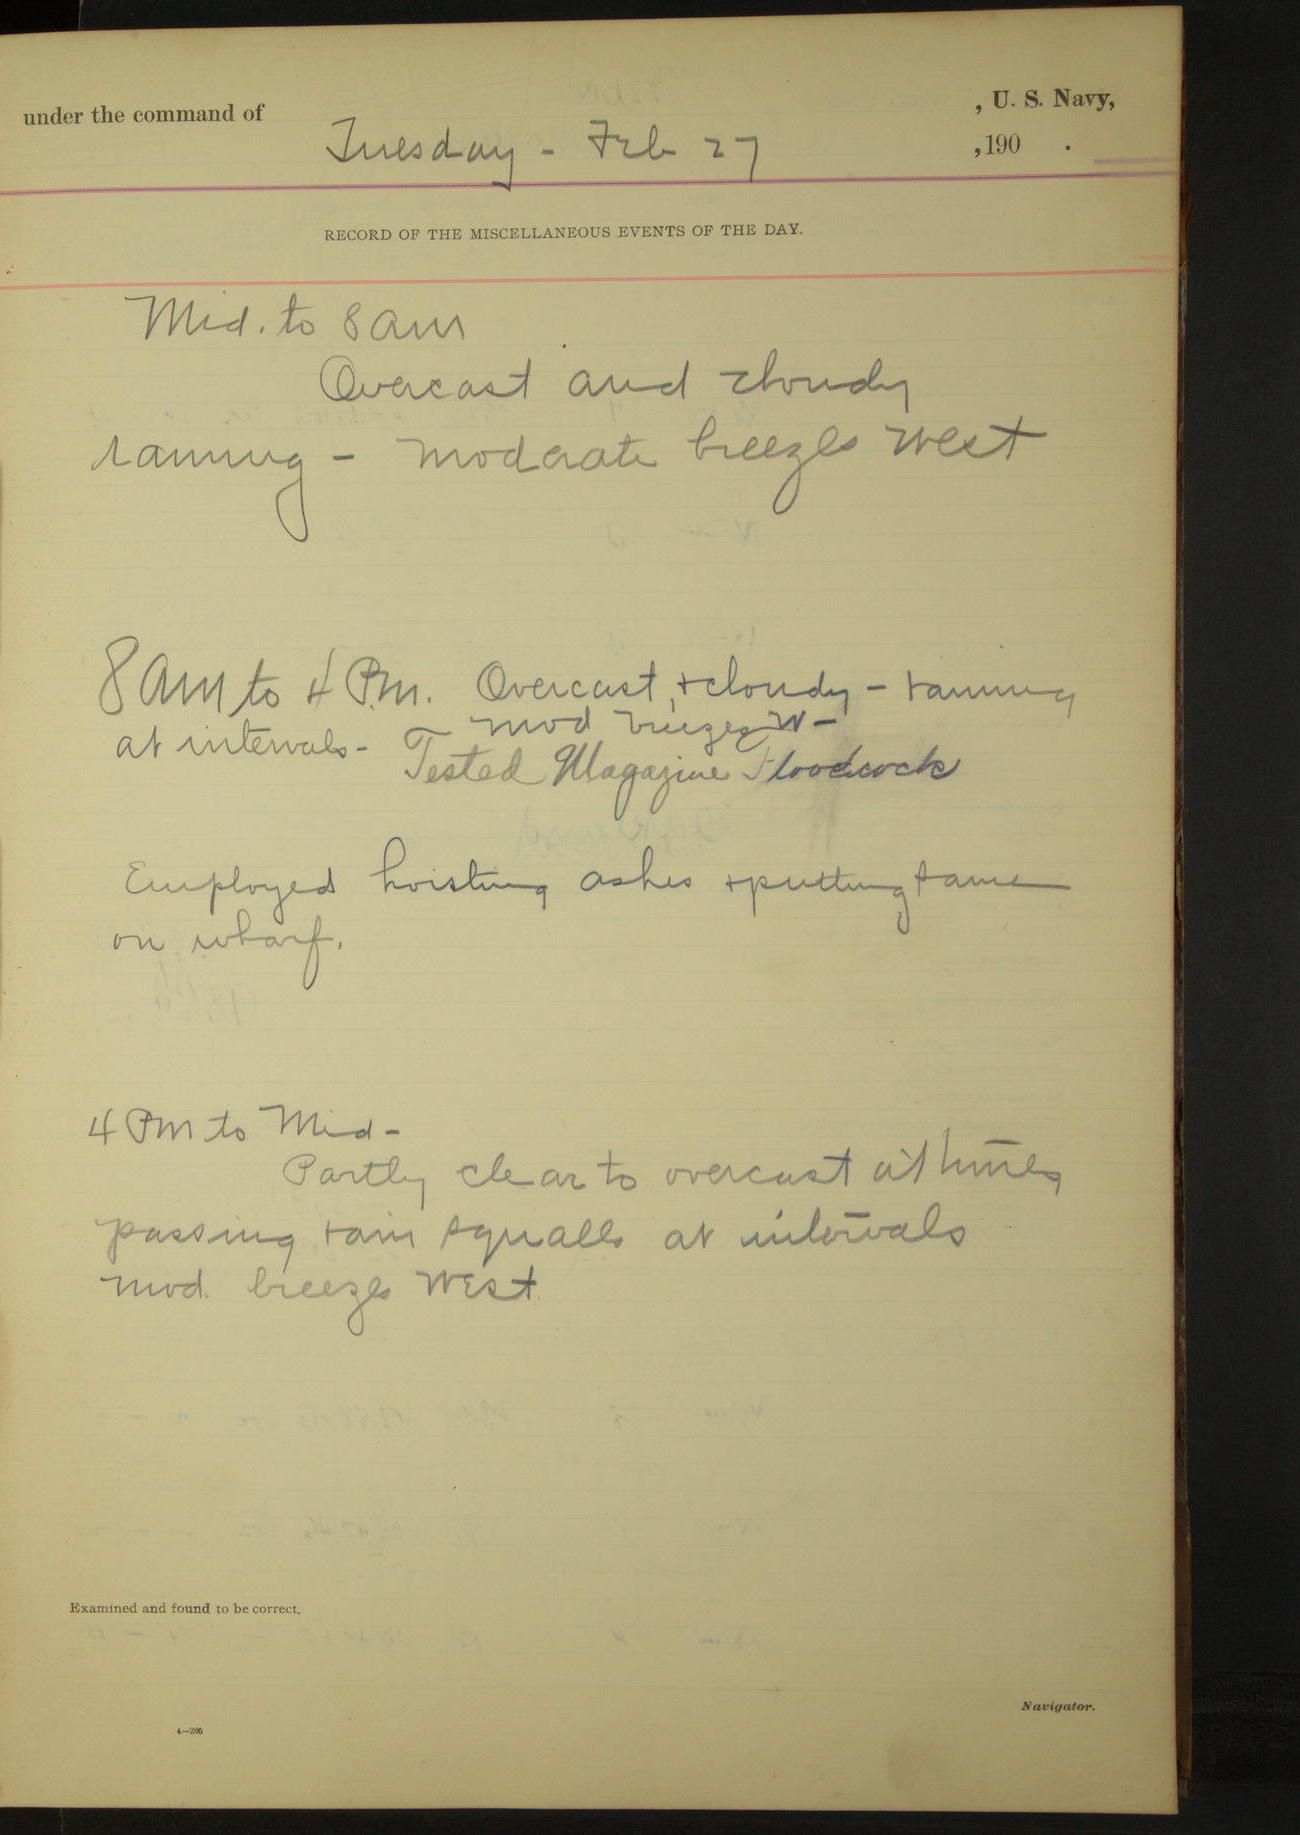 under the command of , U. S. Navy,
Tuesday - Feb 27 , 190 .
RECORD OF THE MISCELLANEOUS EVENTS OF THE DAY.
Mid. to 8 am
Overcast and cloudy
raining - moderate breezes West
8 am to 4 P.m. Overcast + cloudy - raining
at intervals - mod breezes W -
Tested Magazine Floodcock
Employed hoisting ashes + putting same
on wharf.
4 Pm to Mid -
Partly clear to overcast at times
passing rain squalls at intervals
mod. breezes West
Examined and found to be correct.
Navigator.
4—205